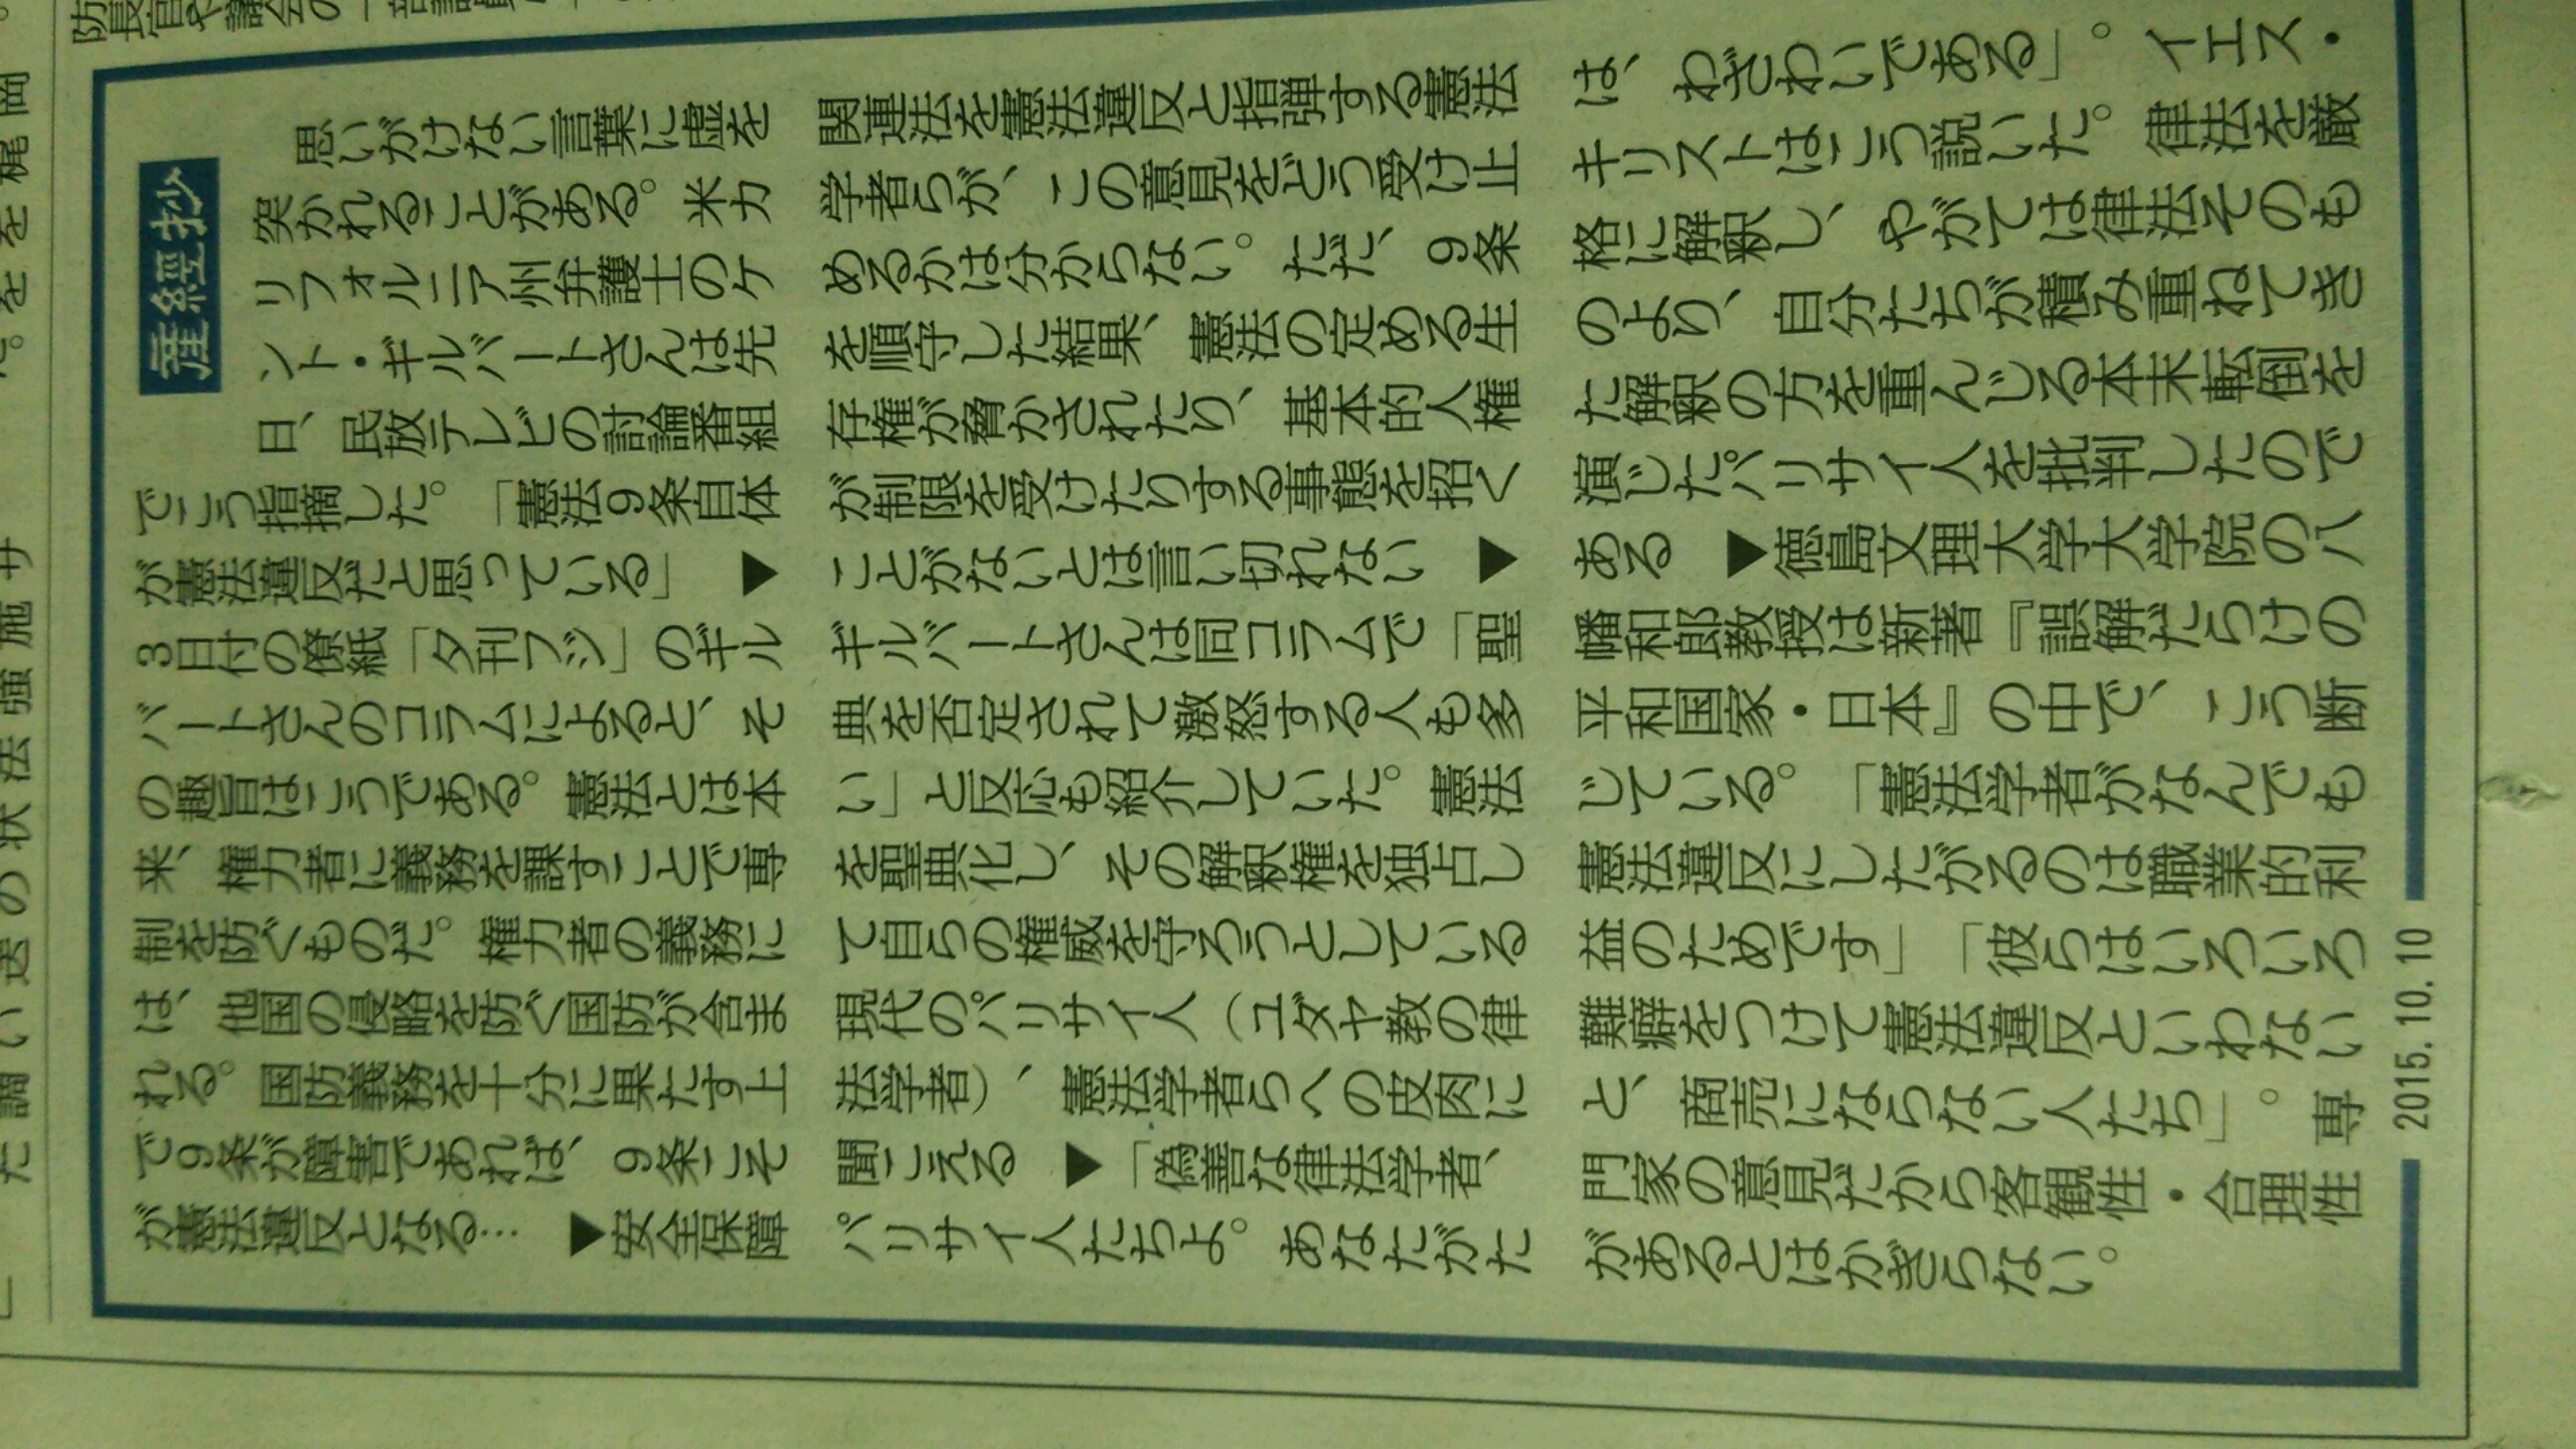 産經抄
思いがけない言葉に虚を
突かれることがある。米カ
リフォルニア州弁護士のケ
ント・ギルバートさんは先
日、民放テレビの討論番組
でこう指摘した。「憲法9条自体
が憲法違反だと思っている」 ▼
3日付の僚紙「夕刊フジ」のギル
バートさんのコラムによると、そ
の趣旨はこうである。憲法とは本
来、権力者に義務を課すことで専
制を防ぐものだ。権力者の義務に
は、他国の侵略を防ぐ国防が含ま
れる。国防義務を十分に果たす上
で9条が障害であれば、9条こそ
が憲法違反となる… ▼安全保障
関連法を憲法違反と指弾する憲法
学者らが、この意見をどう受け止
めるかは分からない。ただ、9条
を順守した結果、憲法の定める生
存権が脅かされたり、基本的人権
が制限を受けたりする事態を招く
ことがないとは言い切れない ▼
ギルバートさんは同コラムで「聖
典を否定されて激怒する人も多
い」と反応も紹介していた。憲法
を聖典化し、その解釈権を独占し
て自らの権威を守ろうとしている
現代のパリサイ人(ユダヤ教の律
法学者)、憲法学者らへの皮肉に
聞こえる ▼「偽善な律法学者、
パリサイ人たちよ。あなたがた
は、わざわいである」。イエス・
キリストはこう説いた。律法を厳
格に解釈し、やがては律法そのも
のより、自分たちが積み重ねてき
た解釈の方を重んじる本末転倒を
演じたパリサイ人を批判したので
ある ▼徳島文理大学大学院の八
幡和郎教授は新著『誤解だらけの
平和国家・日本』の中で、こう断
じている。「憲法学者がなんでも
憲法違反にしたがるのは職業的利
益のためです」「彼らはいろいろ
難癖をつけて憲法違反といわない
と、商売にならない人たち」。専
門家の意見だから客観性・合理性
があるとはかぎらない。
2015.10.10